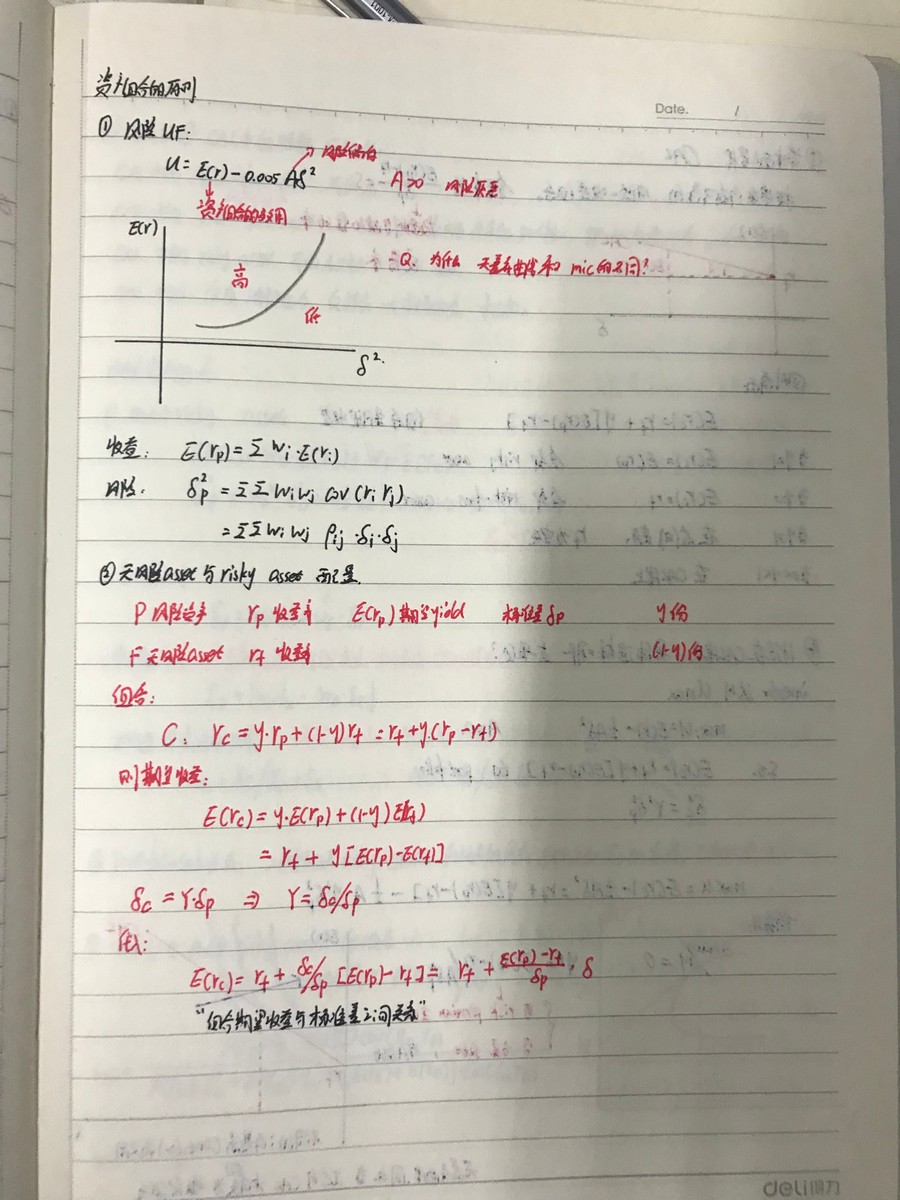 资产组合的原则
Date. /
① 风险 UF:
U = E(r) - 0.005 Aδ²
风险偏好
A>0 风险厌恶
资产组合的效用
E(r)
Q. 为什么 无差异曲线和 mic 的不同?
高
低
δ².
收益: E(rp) = Σ wi·E(ri)
风险: δp² = ΣΣ wi wj cov (ri rj)
= ΣΣ wi wj ρij·δi·δj
② 无风险asset与risky asset 配置.
P 风险资产 rp 收益率 E(rp)期望yield 标准差 δp y份
F 无风险asset rf 收益率 (1-y)份
组合:
C: rc = y·rp + (1-y)rf = rf + y(rp - rf)
则期望收益:
E(rc) = y·E(rp) + (1-y) E(rf)
= rf + y [E(rp) - E(rf)]
δc = Y·δp ⇒ Y = δc/δp
代入:
E(rc) = rf + δc/δp [E(rp) - rf] = rf + E(rp) - rf / δp · δ
"组合期望收益与标准差之间关系"
deli得力